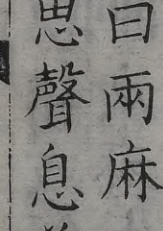 曰兩麻
思聲息